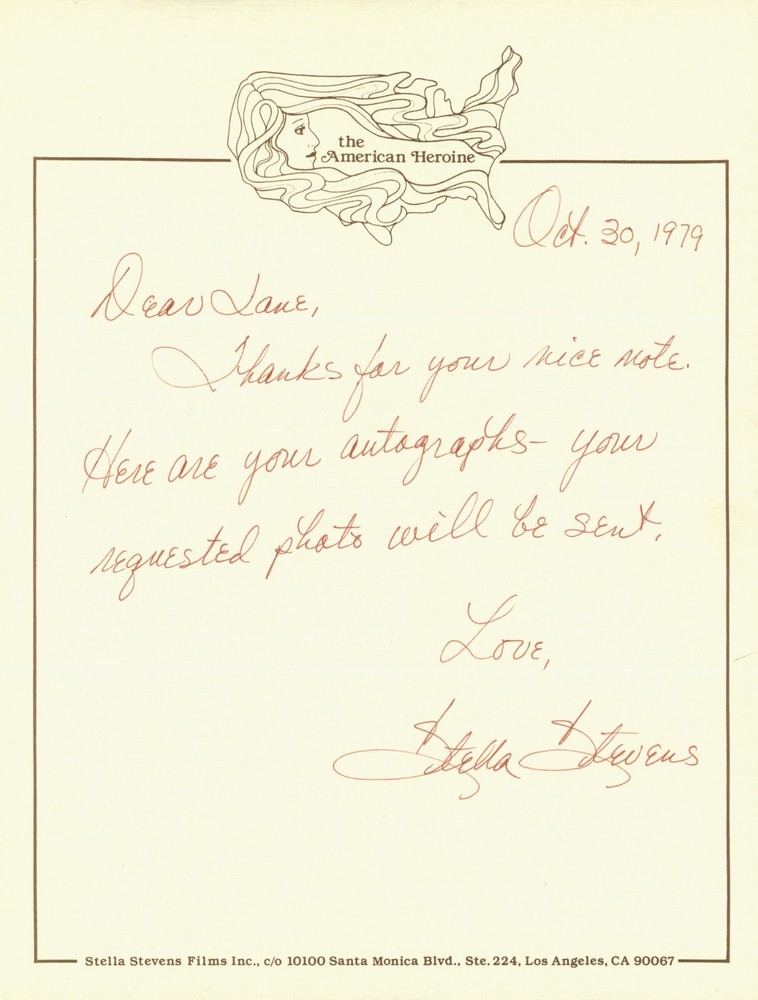 the
American Heroine
Oct. 30, 1979
Dear Lane,
Thanks for your nice note.
Here are your autographs- your
requested photo will be sent.
Love,
Stella Stevens
Stella Stevens Films Inc., c/o 10100 Santa Monica Blvd., Ste. 224, Los Angeles, CA 90067